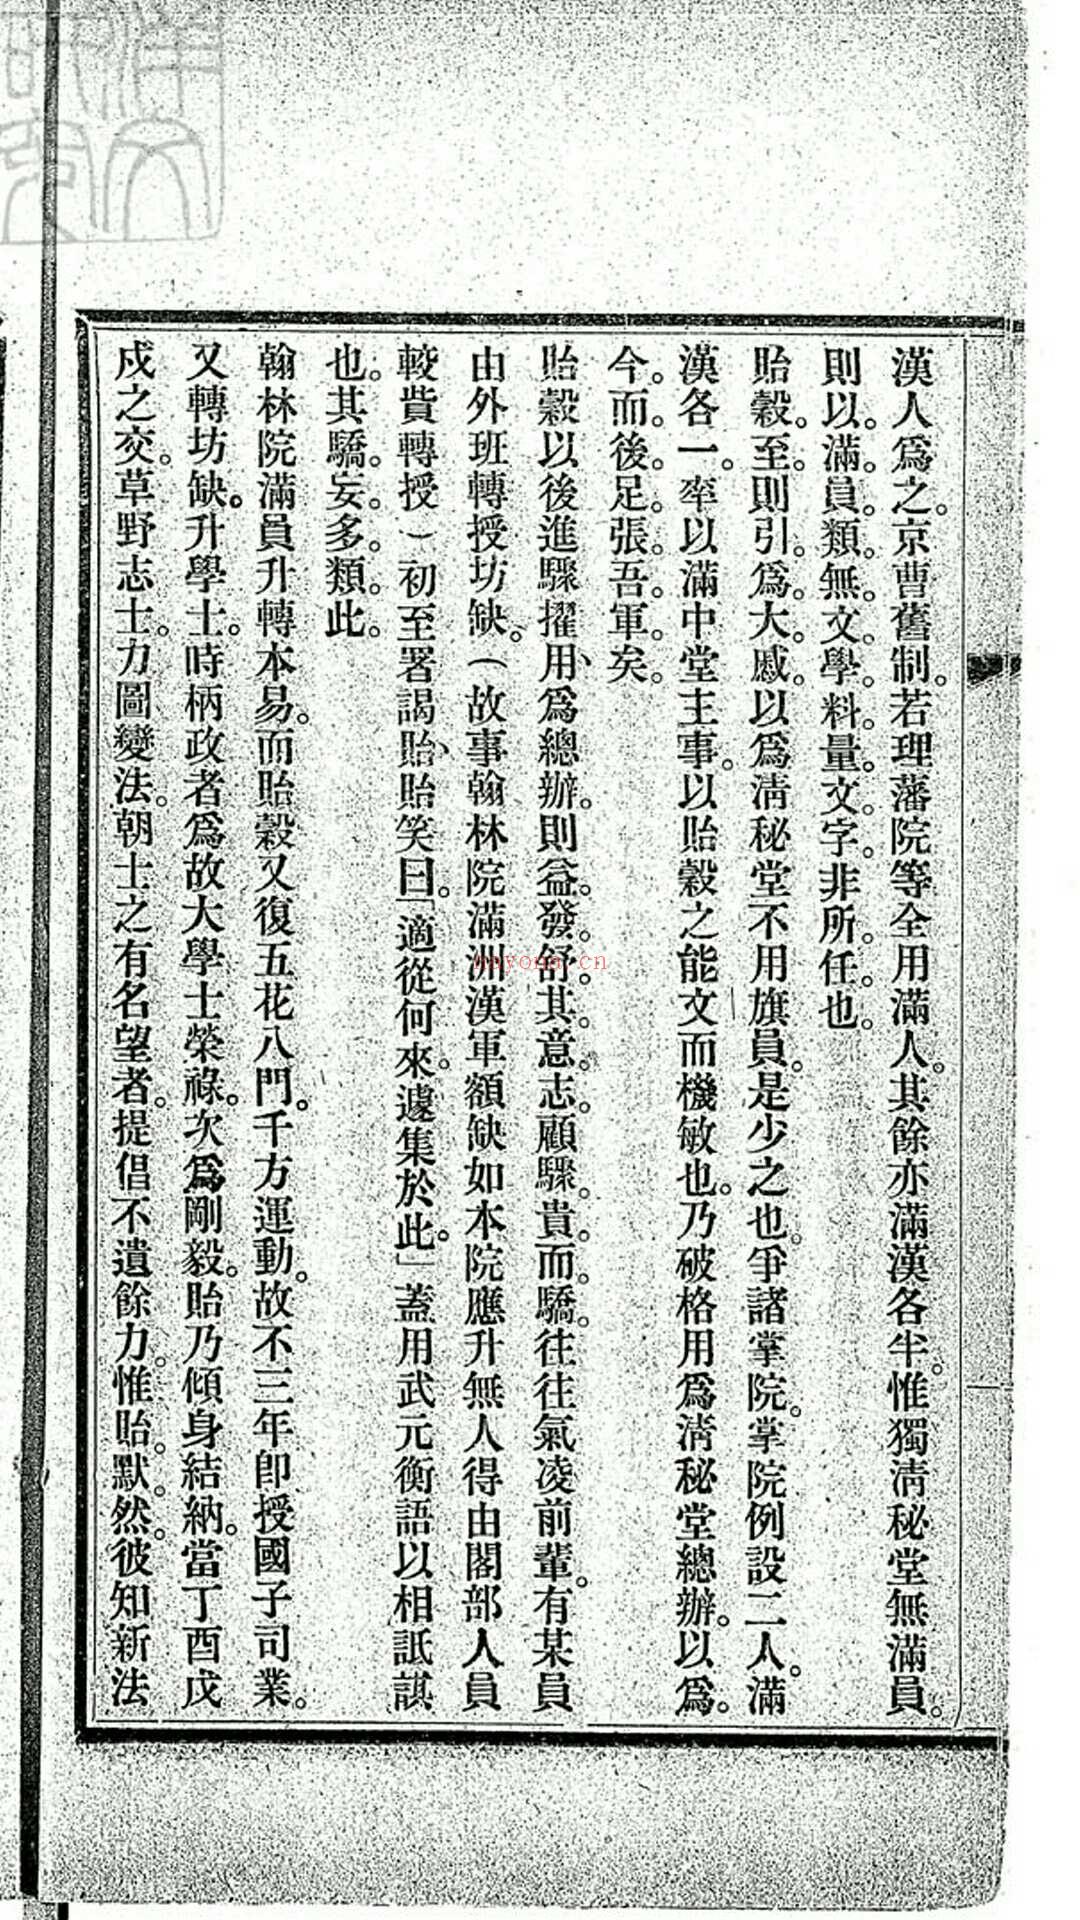 漢人爲之。京曹舊制。若理藩院等全用滿人。其餘亦滿漢各半。惟獨淸秘堂無滿員。
則以。滿。員。類。無。文。學。料。量。文。字。非。所。任。也。
貽穀。至。則引。爲。大。慼。以爲淸秘堂不用旗員。是少之也。爭諸掌院。掌院例設二人。滿
漢各一。率以滿中堂主事。以貽穀之能文而機敏也。乃破格用爲淸秘堂總辦。以爲。
今。而。後。足。張。吾。軍。矣。
貽穀以後進驟擢用、爲總辦。則益。發。舒。其。意。志。顧驟。貴。而。驕。往往氣凌前輩。有某員
由外班轉授坊缺。(故事翰林院滿洲漢軍額缺如本院應升無人得由閣部人員
較貲轉授)初至署謁貽、貽笑曰。「適從何來。遽集於此。」蓋用武元衡語以相詆諆
也。其驕。妄。多。類。此。
翰林院滿員升轉本易。而貽穀又復五花八門。千方運動。故不三年卽授國子司業。
又轉坊缺。升學士。時柄政者爲故大學士榮祿。次爲剛毅。貽乃傾身結納。當丁酉戊
戌之交。草野志士。力圖變法。朝士之有名望者。提倡不遺餘力。惟貽。默。然。彼知新法